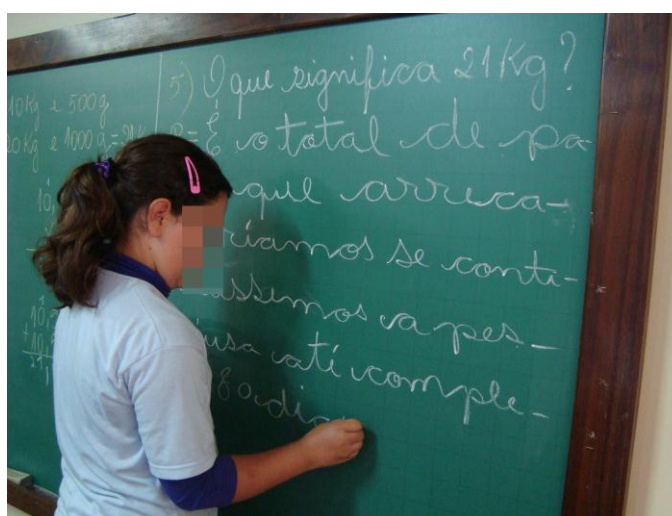 10Kg e 500g
20Kg e 1000g = 21K
5) O que significa 21Kg?
R = É o total de pa
que arreca-
ríamos se conti-
ssemos a pes-
usa até comple-
80 dias